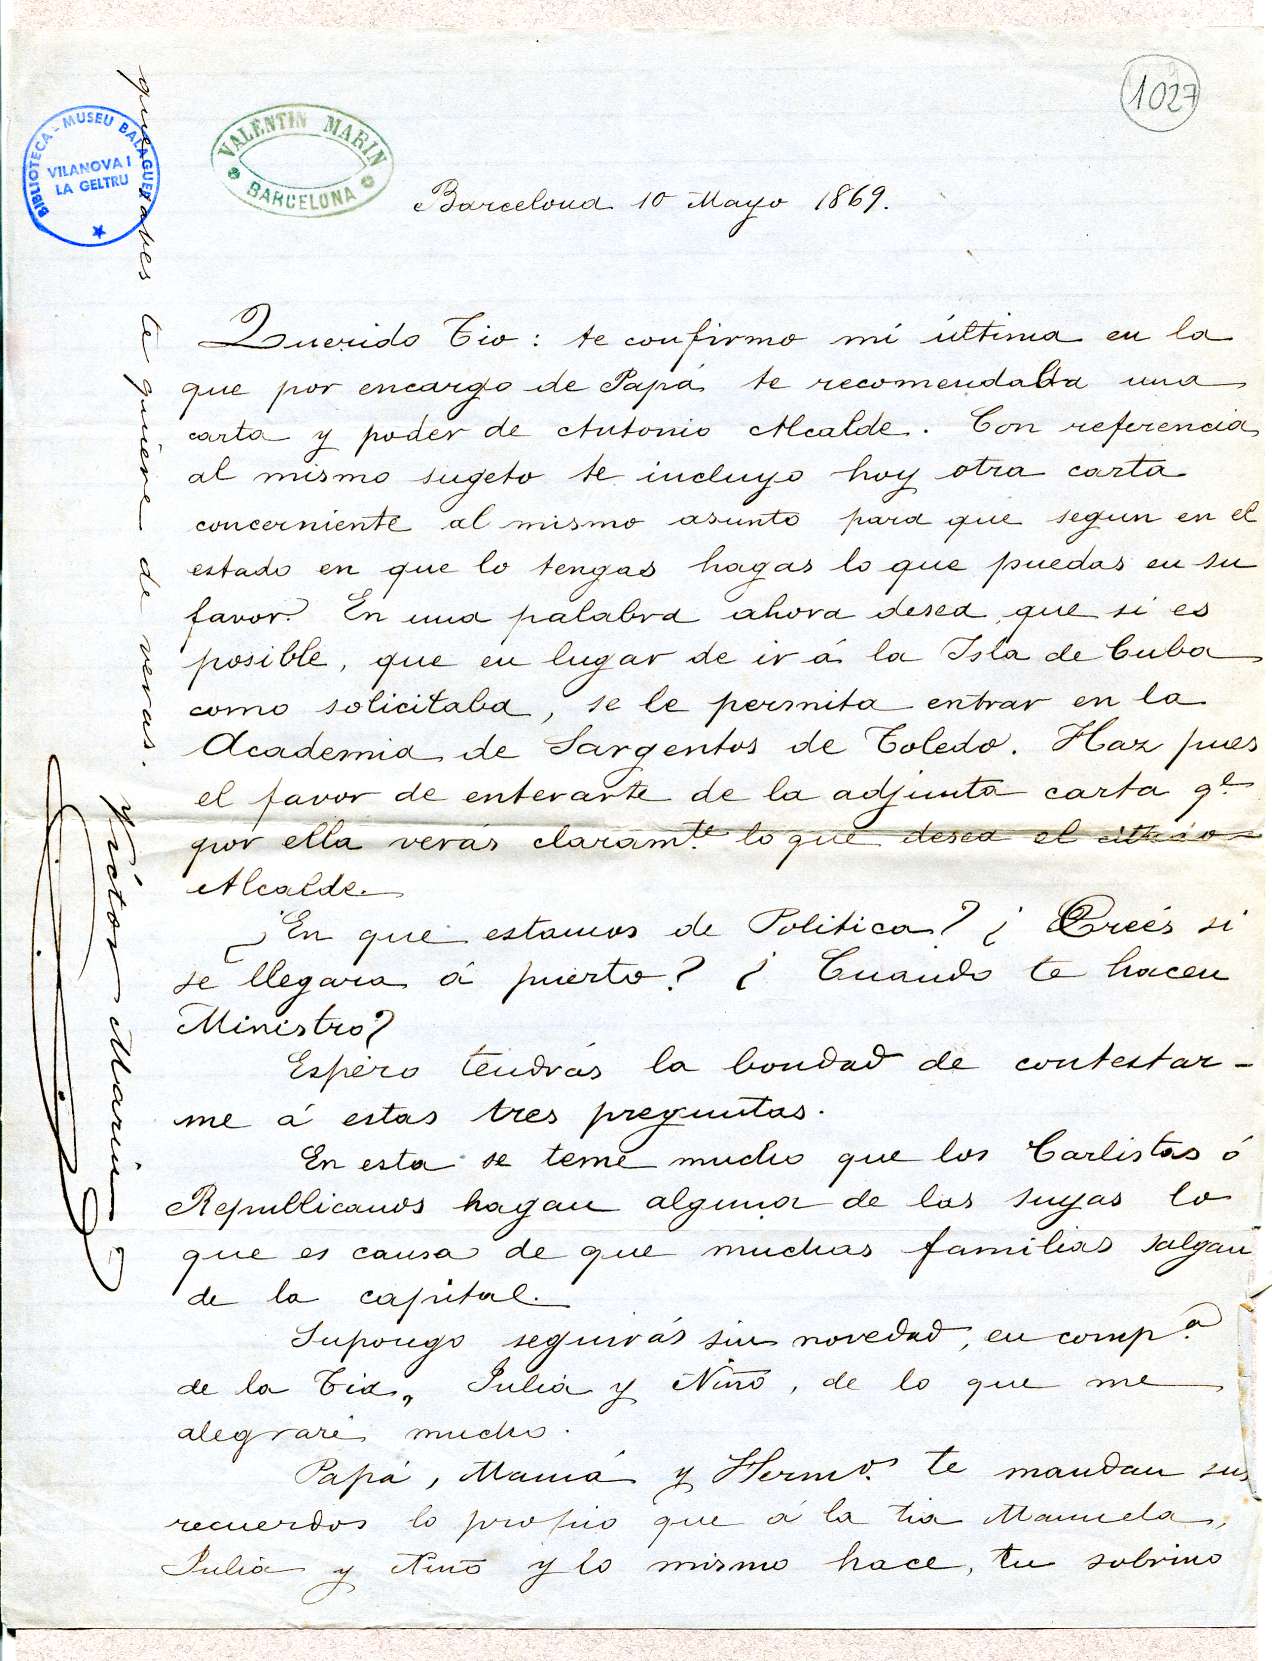 1027
BIBLIOTECA - MUSEU BALAGUER
VILANOVA I
LA GELTRU
VALENTIN MARIN
BARCELONA
Barcelona 10 Mayo 1869.
Querido Tio: te confirmo mi última en la
que por encargo de Papá te recomendaba una
carta y poder de Antonio Alcalde. Con referencia
al mismo sugeto te incluyo hoy otra carta
concerniente al mismo asunto para que segun en el
estado en que lo tengas hagas lo que puedas en su
favor. En una palabra ahora desea, que si es
posible, que en lugar de ir á la Isla de Cuba
como solicitaba, se le permita entrar en la
Academia de Sargentos de Toledo. Haz pues
el favor de enterarte de la adjunta carta qe.
por ella verás claramte. lo que desea el citado
Alcalde.
¿En que estamos de Politica? ¿Creés si
se llegara á puerto? ¿Cuando te hacen
Ministro?
Espero tendrás la bondad de contestar-
me á estas tres preguntas.
En esta se teme mucho que los Carlistas ó
Republicanos hagan alguna de las suyas lo
que es causa de que muchas familias salgan
de la capital.
Supongo seguirás sin novedad, en compa.
de la Tia, Julia y Niño, de lo que me
alegraré mucho.
Papá, Mamá y Hermos. te mandan sus
recuerdos lo propio que á la tia Manuela,
Julia y Niño y lo mismo hace, tu sobrino
que sabes te quiere de veras.
Victor Marin